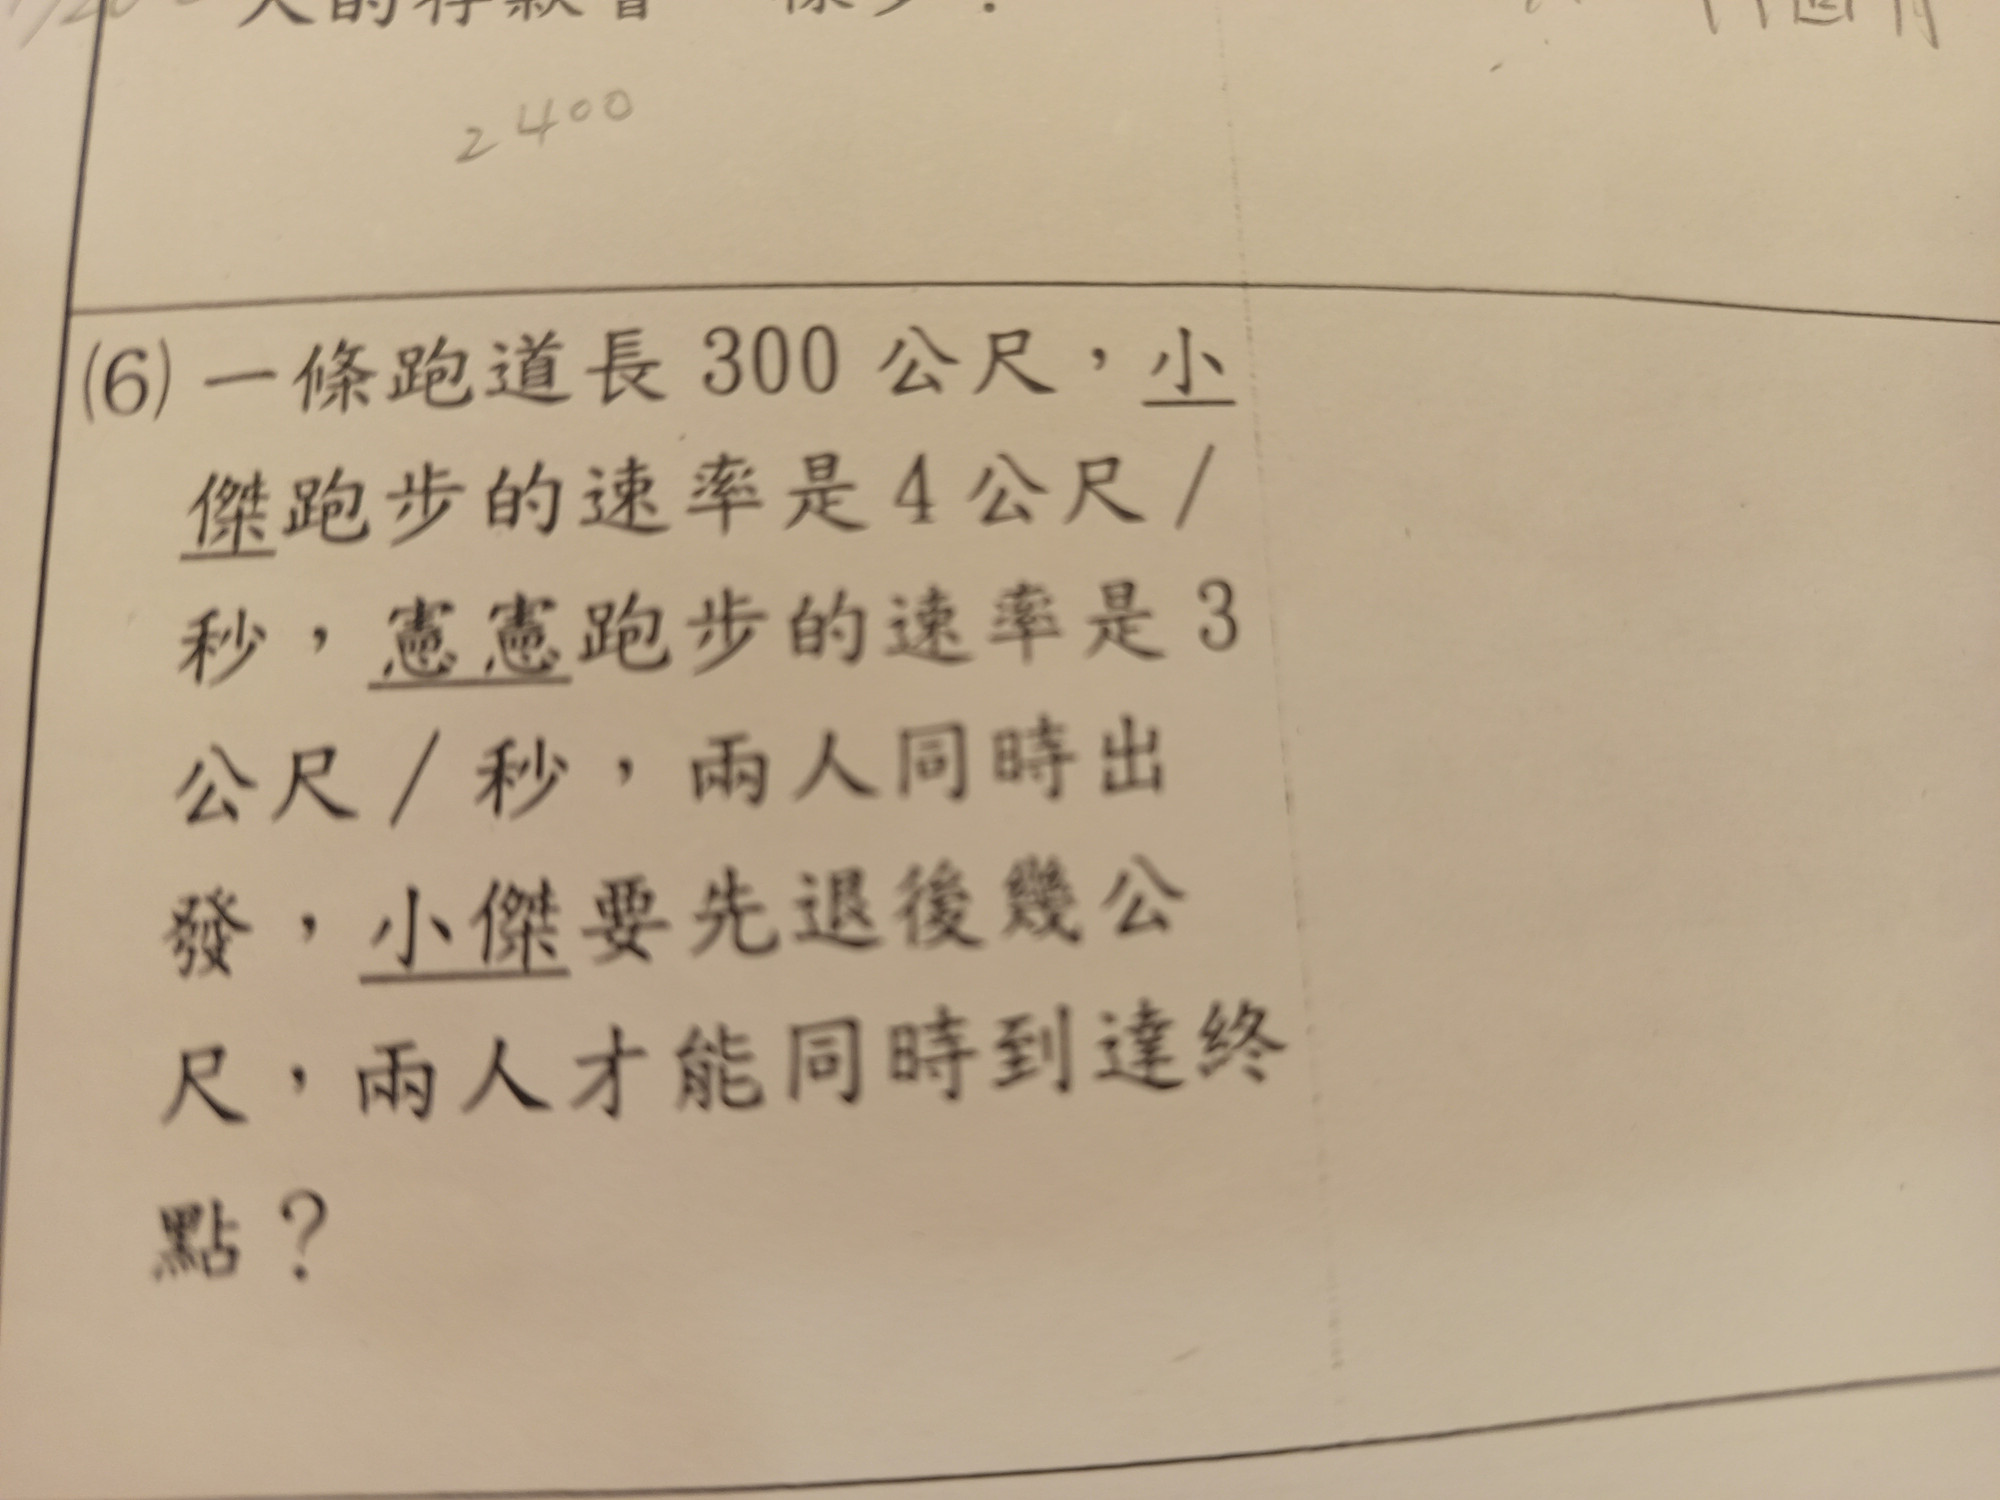 人的存款會一樣多？
2400
(6) 一條跑道長 300 公尺，小
傑跑步的速率是 4 公尺 /
秒，憲憲跑步的速率是 3
公尺 / 秒，兩人同時出
發，小傑要先退後幾公
尺，兩人才能同時到達終
點？